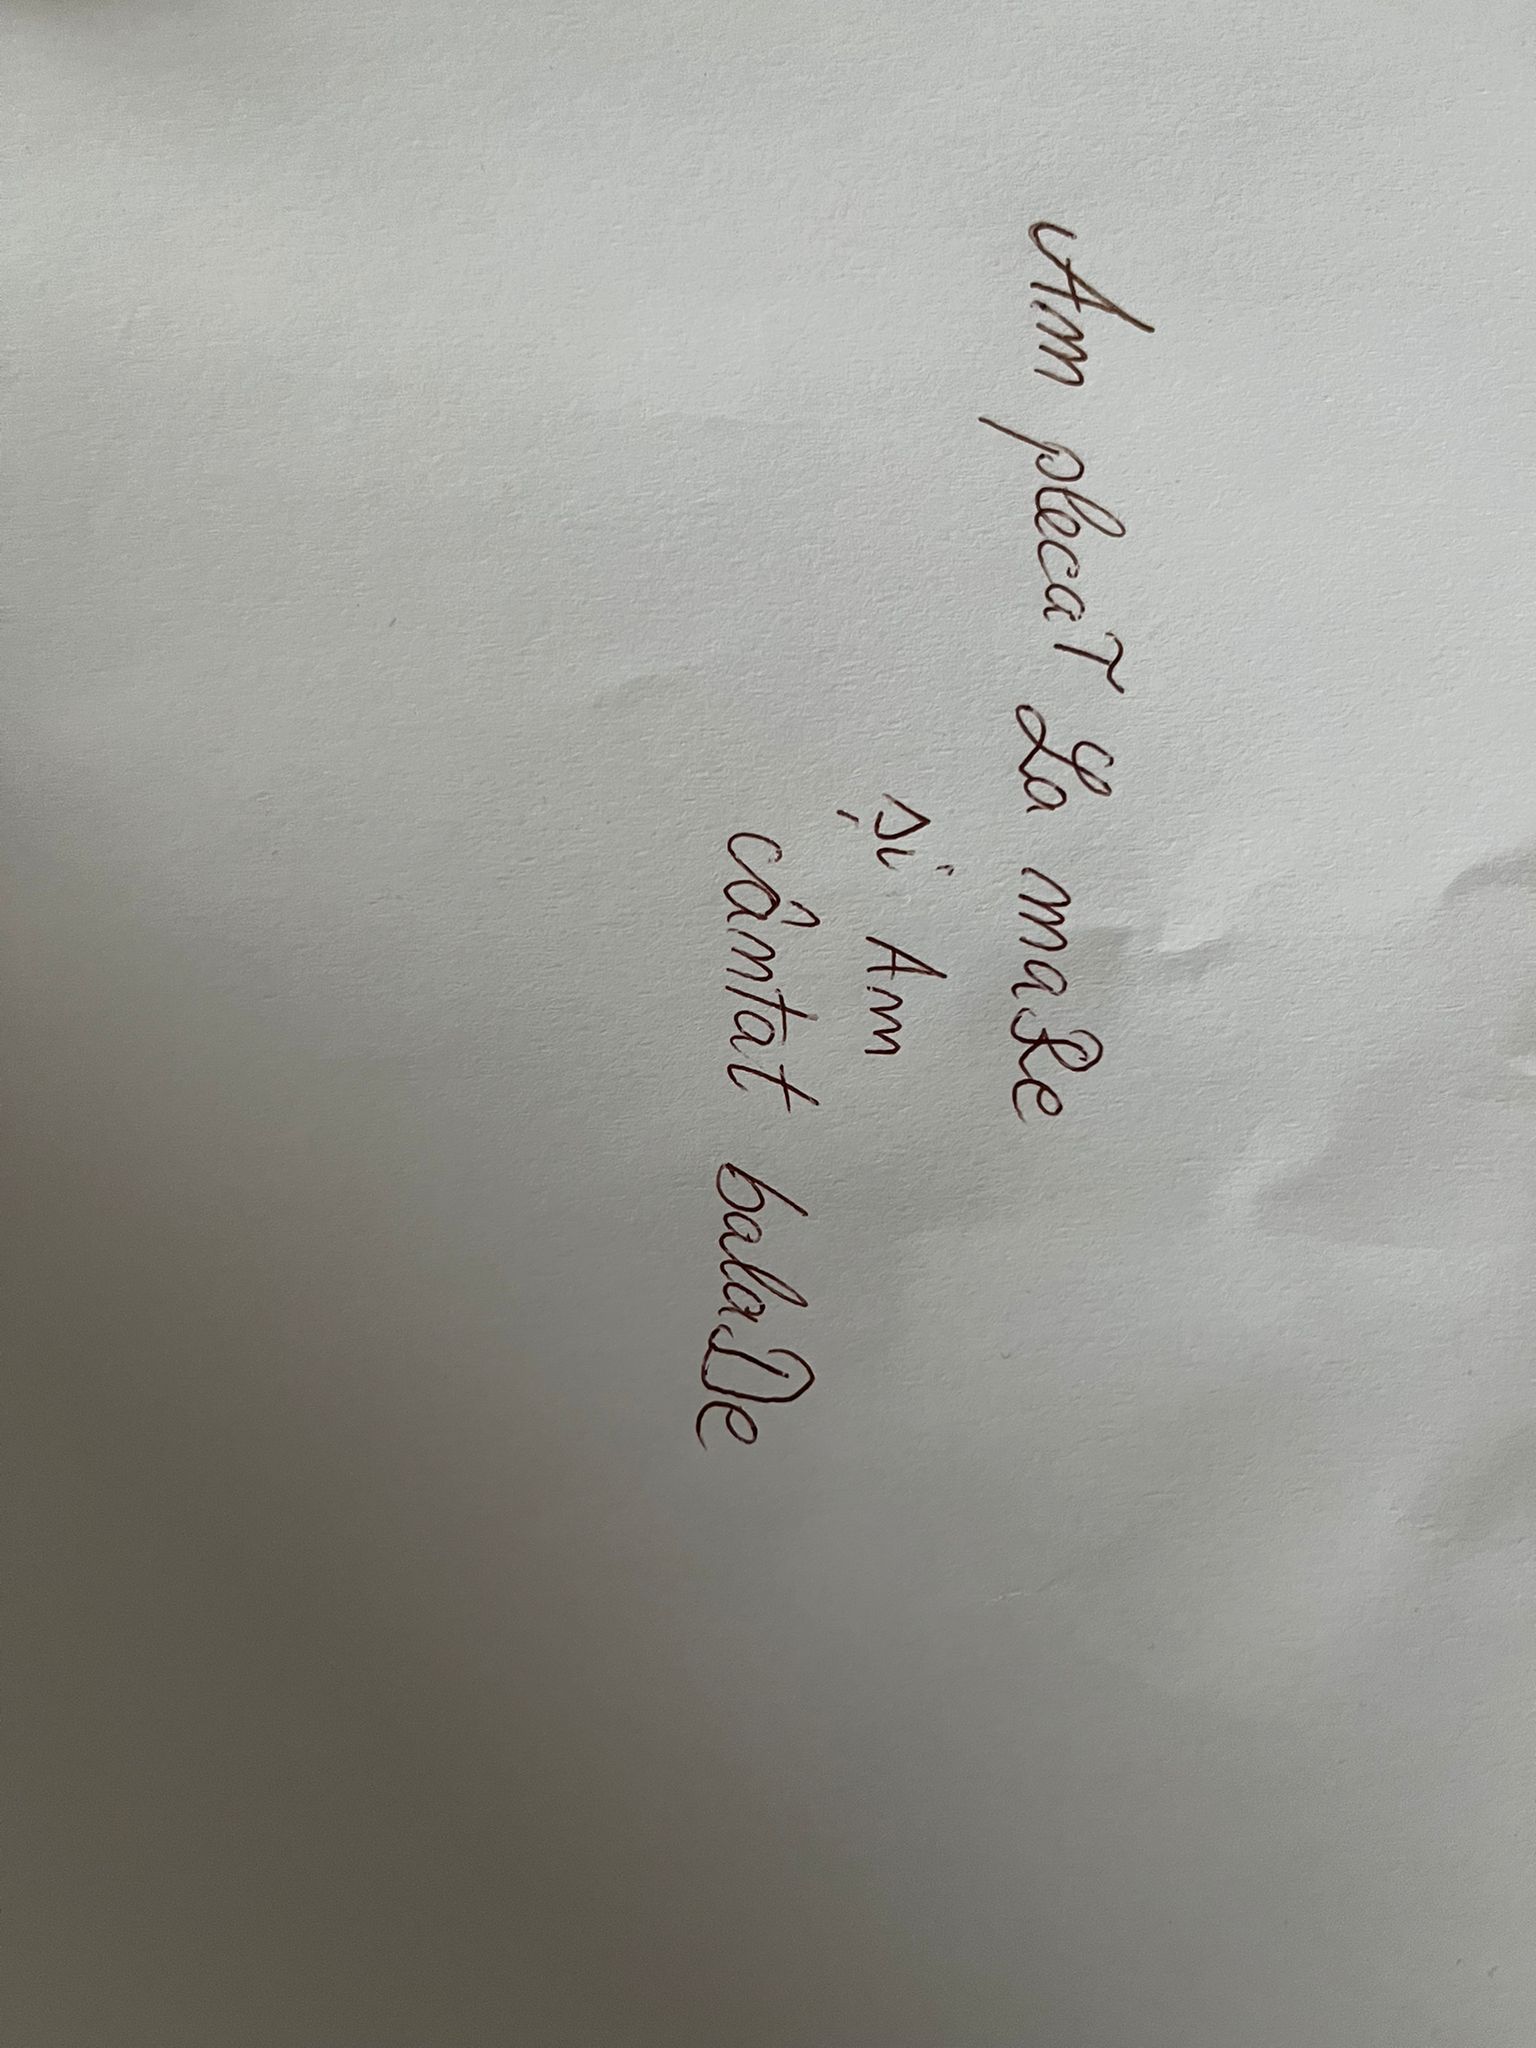 Am plecaT La maRe
și Am
cântat balaDe